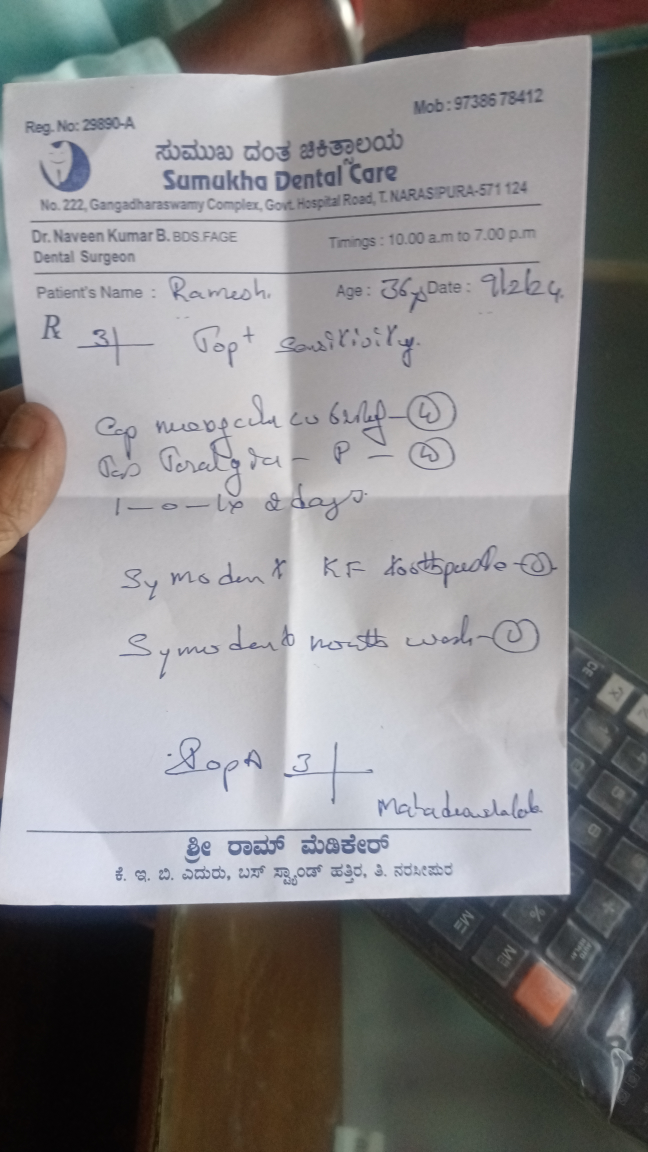 Reg. No: 29890-A
Mob : 97386 78412
ಸುಮುಖ ದಂತ ಚಿಕಿತ್ಸಾಲಯ
Sumukha Dental Care
No. 222, Gangadharaswamy Complex, Govt. Hospital Road, T. NARASIPURA-571 124
Dr. Naveen Kumar B. BDS.FAGE
Timings : 10.00 a.m to 7.00 p.m
Dental Surgeon
Patient's Name : Ramesh. Age : 36y Date : 9/2/24.
R 3 Top+ Sensitivity.
Cap
Tab P - 
1-0-1x 2 days.
Symodent KF toothpaste -
Symodent mouth wash -
3
ಶ್ರೀ ರಾಮ್ ಮೆಡಿಕೇರ್
ಕೆ. ಇ. ಬಿ. ಎದುರು, ಬಸ್ ಸ್ಟ್ಯಾಂಡ್ ಹತ್ತಿರ, ತಿ. ನರಸೀಪುರ